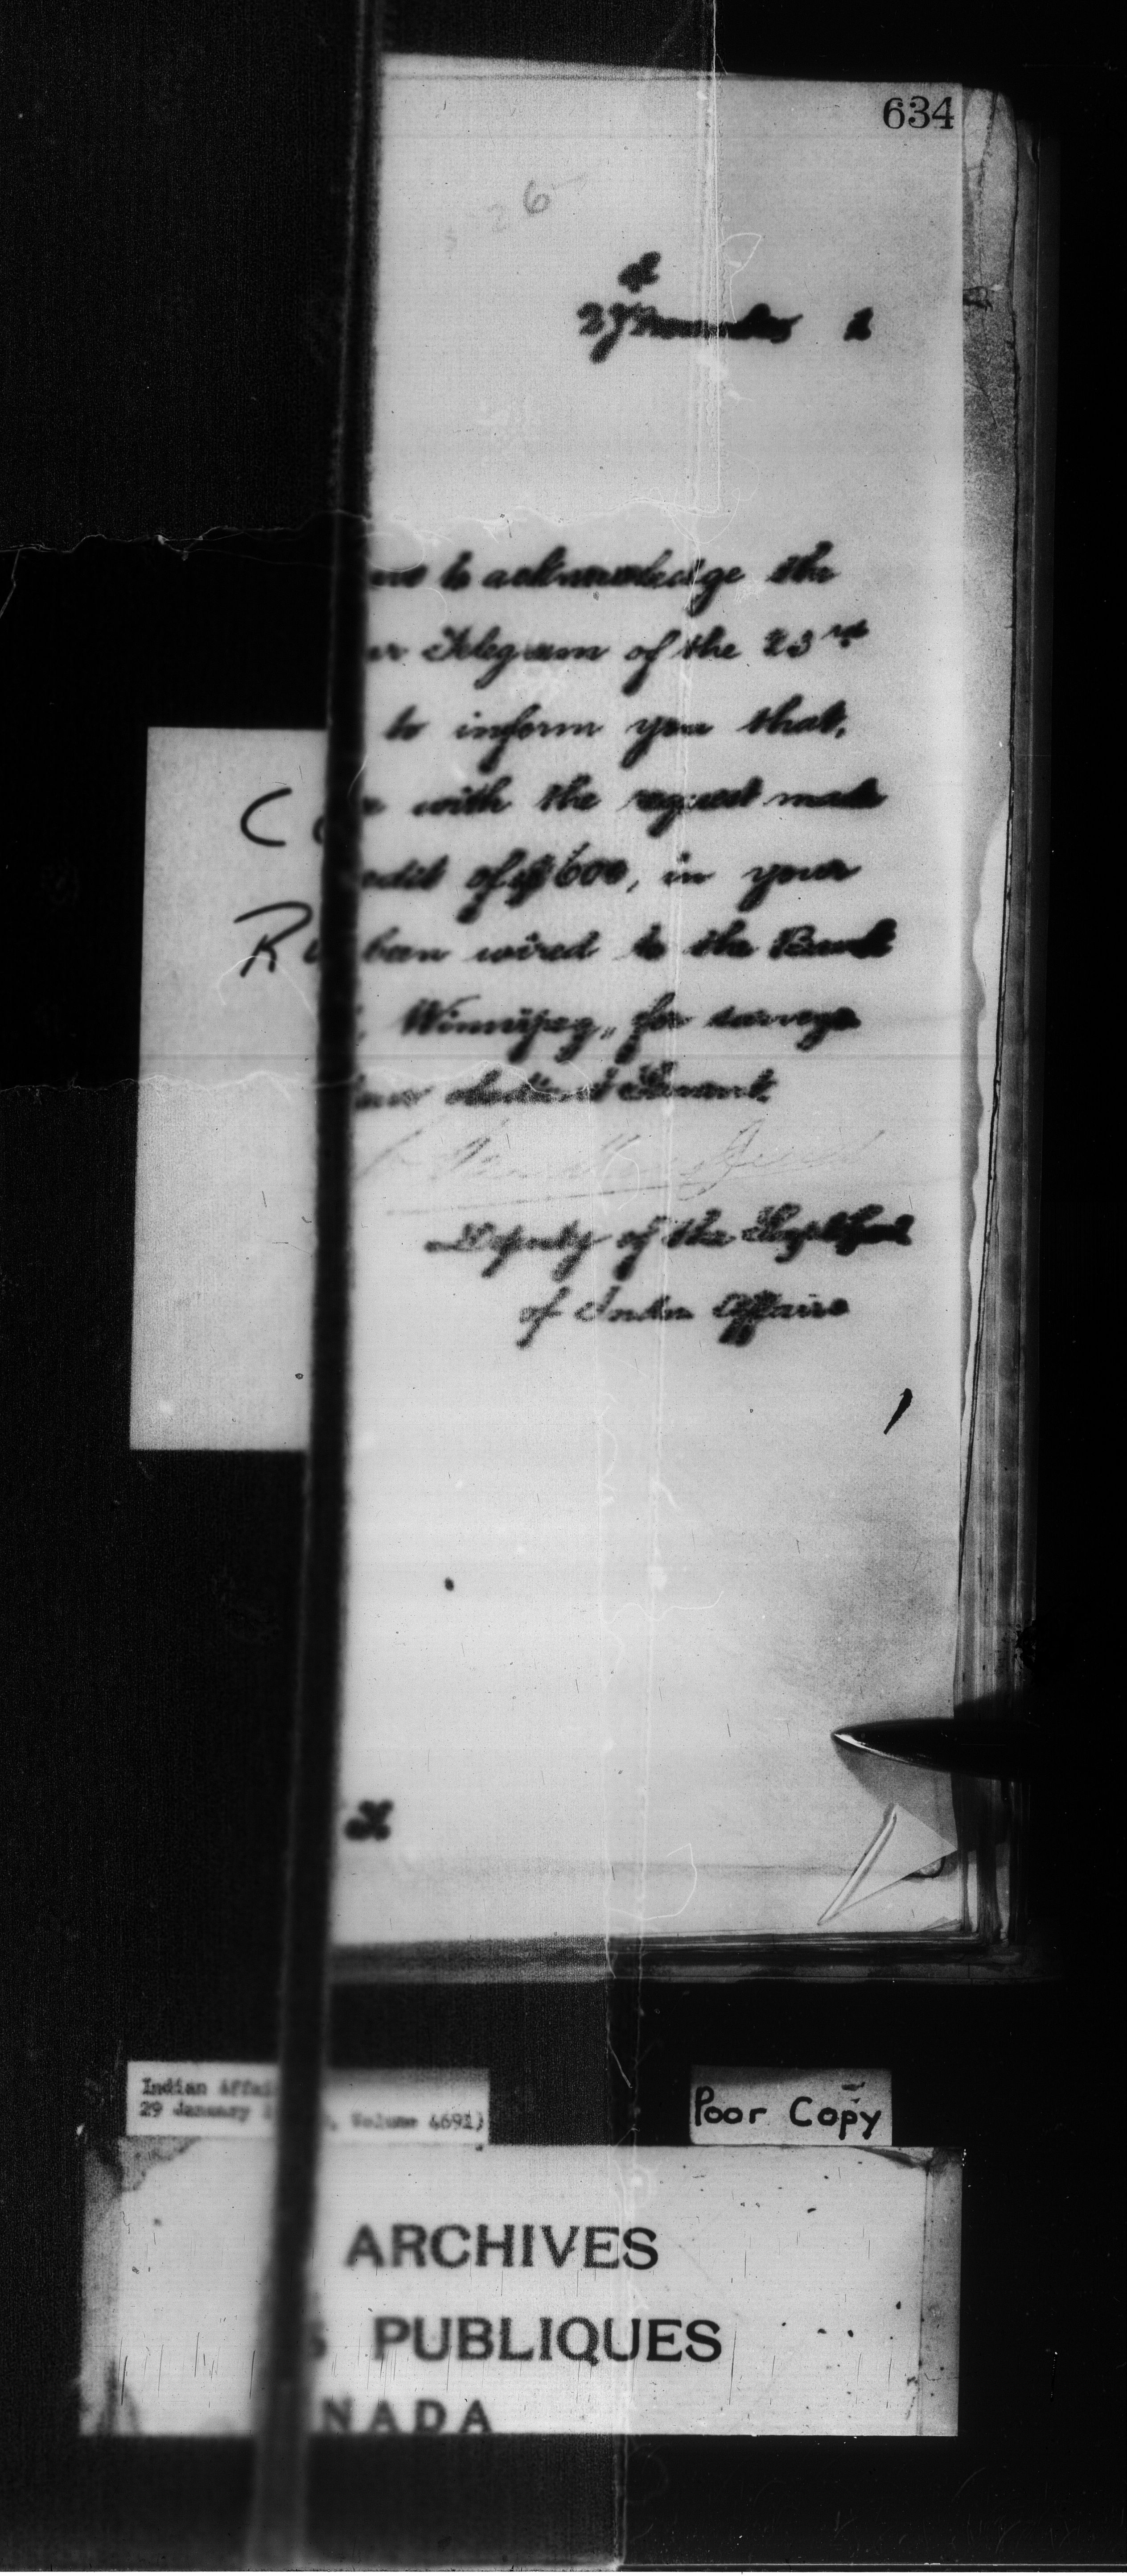 634
26
27 November 2
to acknowledge the
Telegram of the 23rd
to inform you that,
with the request made
edit of $600, in your
been wired to the Bank
Winnipeg, for surveys
obedient Servant.
Deputy of the Supt Genl
of Indian Affairs
C
R
Indian Affai
29 January 1 , Volume 4691)
Poor Copy
ARCHIVES
S PUBLIQUES
NADA